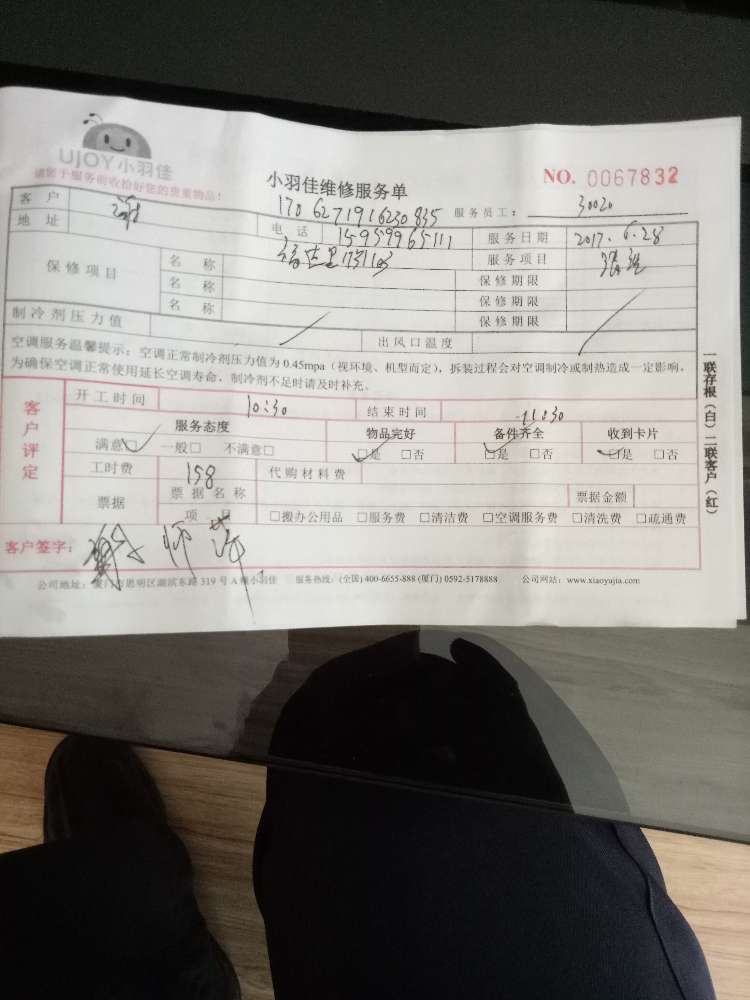 UJOY小羽佳
请您于服务前收拾好您的贵重物品!
小羽佳维修服务单
NO. 0067832
1706271916230835
服务员工: 30020
客 户
地 址
电 话 15959965111
服务日期 2017.6.28
保修项目
名 称
服务项目
名 称
保修期限
名 称
保修期限
保修期限
制冷剂压力值
出风口温度
空调服务温馨提示:空调正常制冷剂压力值为0.45mpa(视环境、机型而定),拆装过程会对空调制冷或制热造成一定影响,
为确保空调正常使用延长空调寿命,制冷剂不足时请及时补充。
客户评定
开工时间 10:30
结束时间 11:30
服务态度
物品完好
备件齐全
收到卡片
满意□ 一般□ 不满意□
□是 □否
□是 □否
□是 □否
工时费 158
代购材料费
票据
票据名称
票据金额
项 目
□搬办公用品 □服务费 □清洁费 □空调服务费 □清洗费 □疏通费
客户签字:
公司地址:厦门市思明区湖滨东路319号A幢小羽佳 服务热线:(全国)400-6655-888 (厦门) 0592-5178888 公司网站:www.xiaoyujia.com
一联存根(白) 二联客户(红)